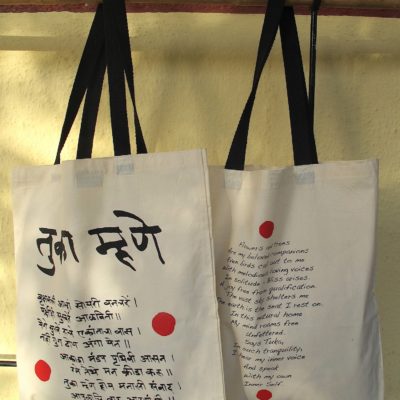 तुका म्हणे
आम्हां सोयरीं वनचरें।
पक्षीही सुस्वरें आळविती॥
येणें सुखें रुचे एकांताचा वास।
नाहीं गुण दोष अंगा येत॥
आकाश मंडप पृथिवी आसन।
रमे तेथें मन क्रीडा करी॥
तुका म्हणे होय मनासी संवाद
आपुलाचि वाद आपणांसी॥
Flowers trees
Are my beloved companions
birds call out to me
with melodious loving voices
In solitude, Bliss arises
joy free from qualification.
The vast sky shelters me
The earth is the seat I rest on.
In this natural home
My mind roams free
Unfettered.
Says Tuka,
In such tranquility,
I hear my inner voice
And speak
with my own
Inner Self.